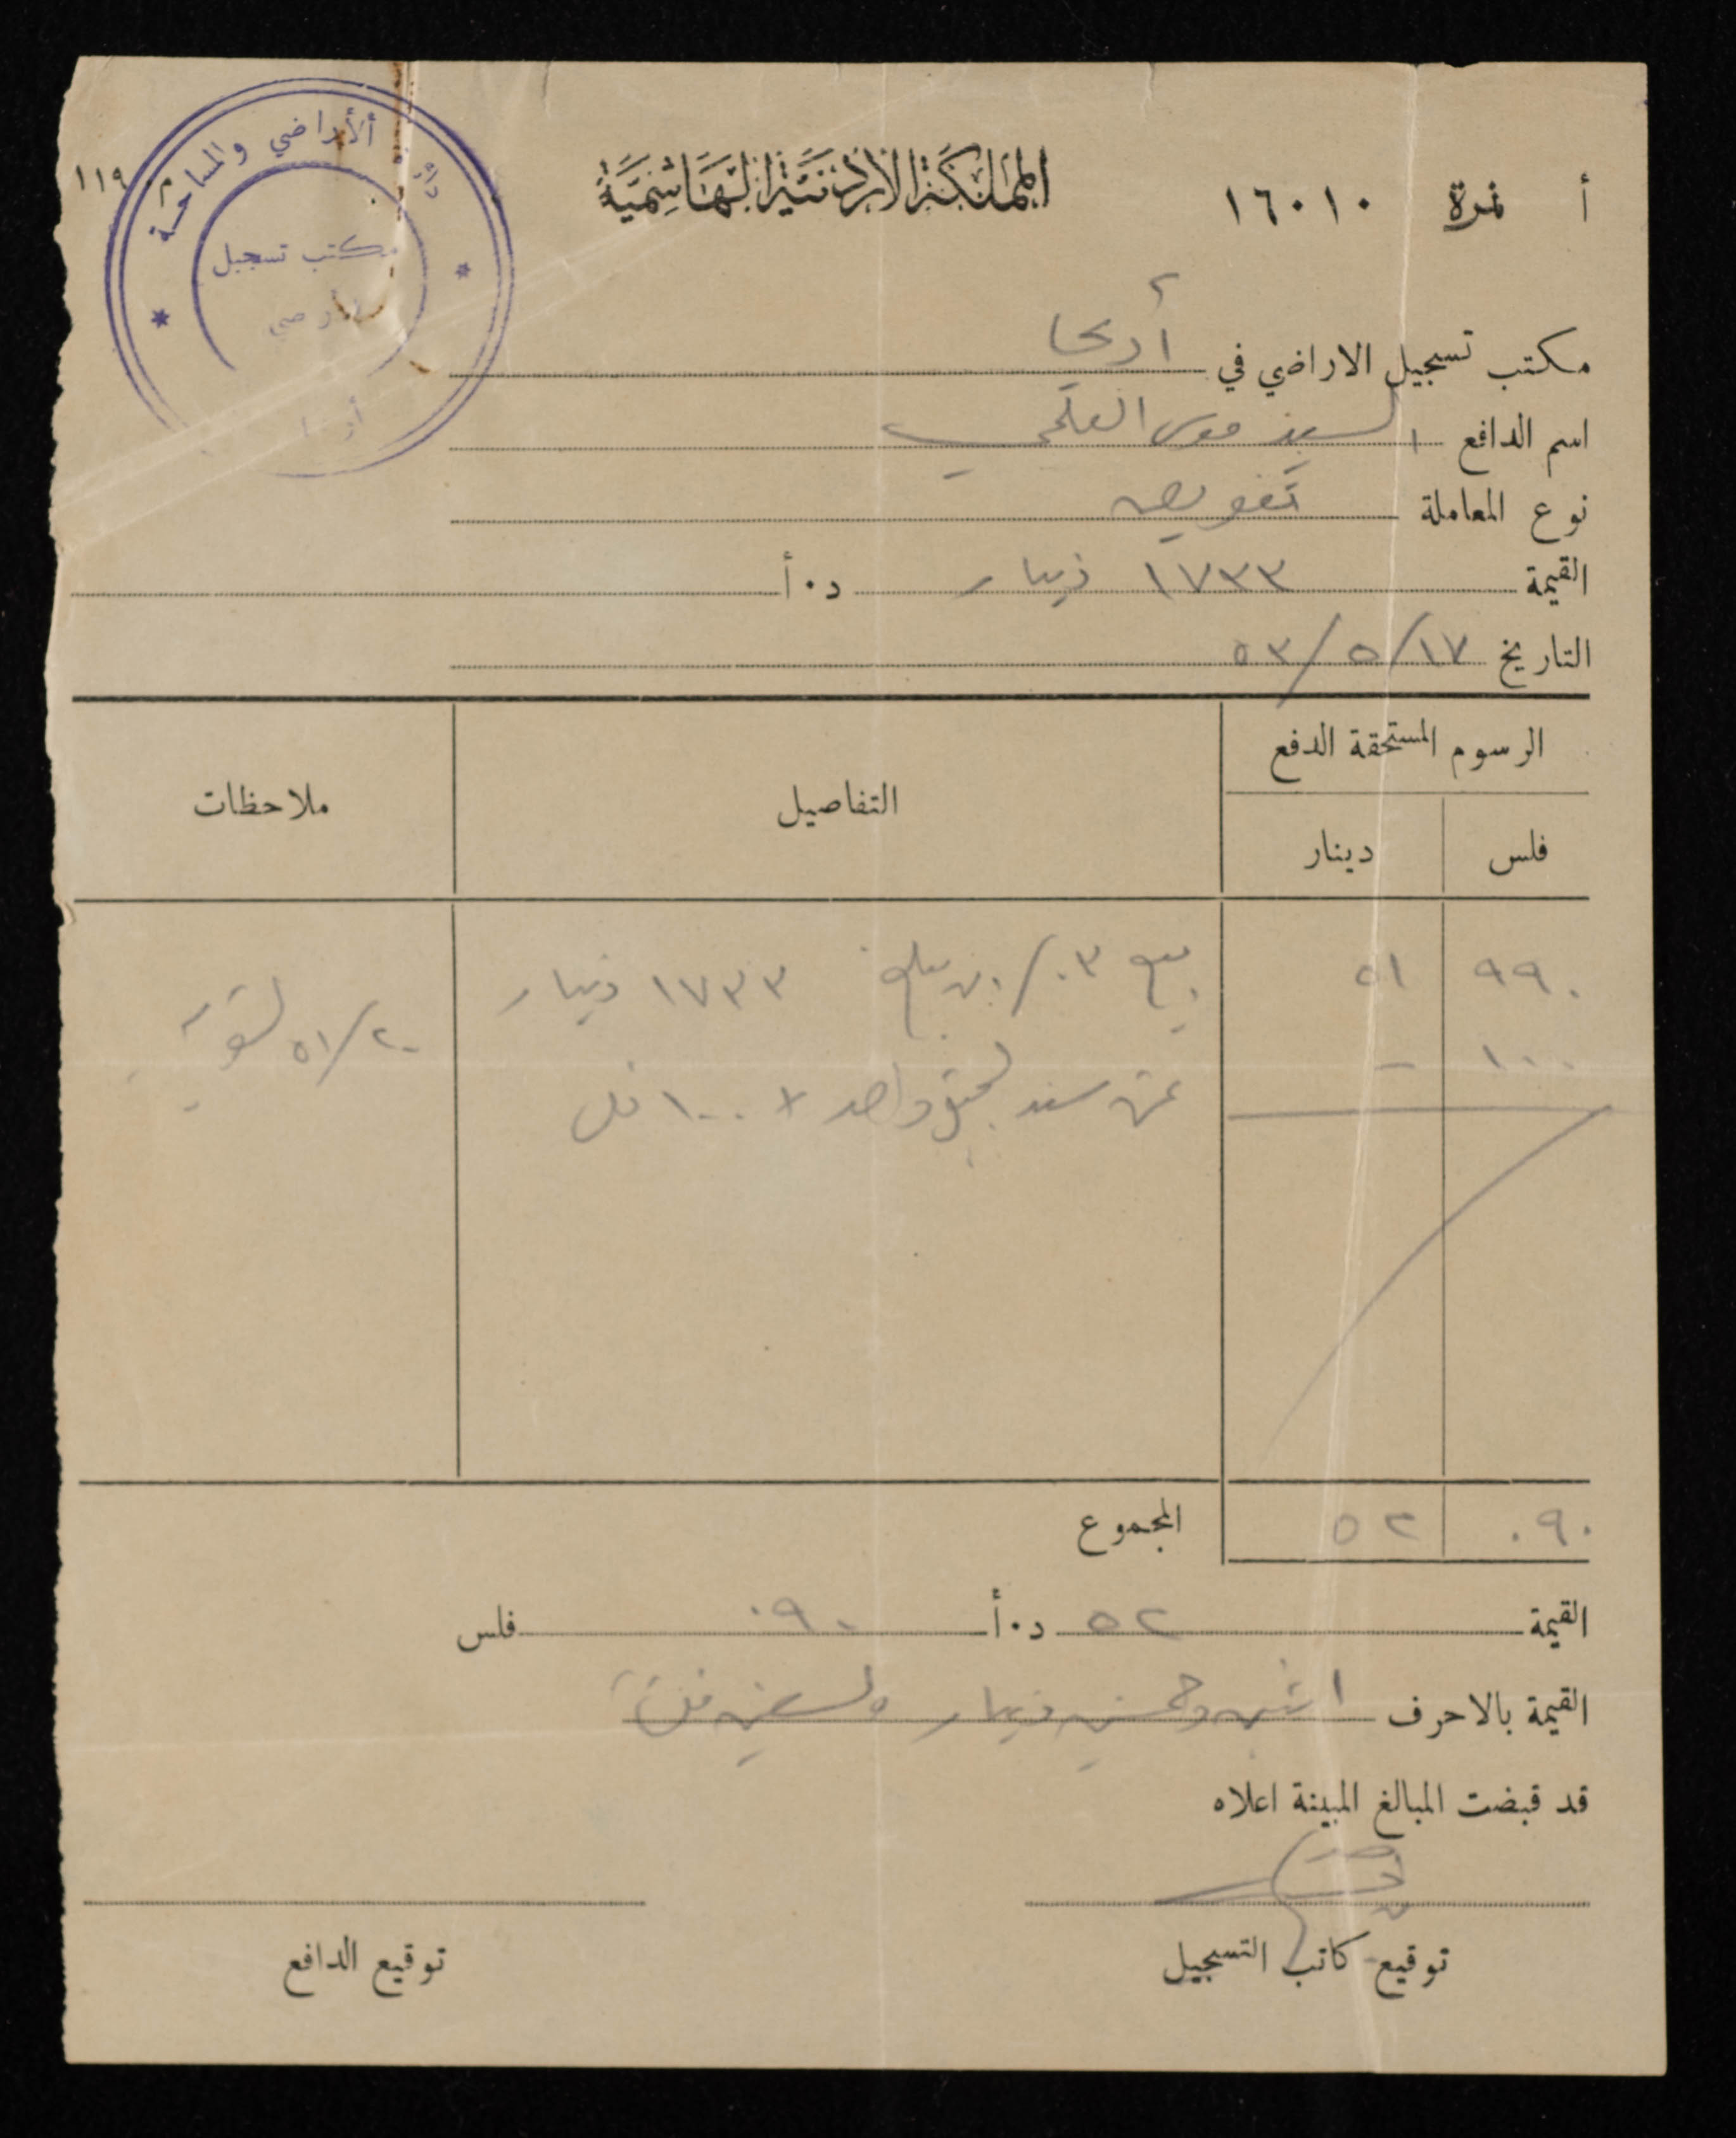 أ نمرة ١٦٠١٠
المملكة الاردنية الهاشمية
١١٩
دائرة ألأراضي والمساحة
مكتب تسجيل
ألأراضي
أريحا
مكتب تسجيل الاراضي في أريحا
اسم الدافع السيد موسى العلمي
نوع المعاملة تفويض
القيمة ١٧٣٣ دينار د٠أ
التاريخ ١٧/٥/٥٣
الرسوم المستحقة الدفع
فلس دينار التفاصيل ملاحظات
٩٩٠ ٥١ بيع ٣٠/٠ مبلغ ١٧٣٣ دينار
١٠٠ - ثمن سند تسجيل واحد ١٠٠ فلس
٥١/٢٠
٠٩٠ ٥٢ المجموع
القيمة ٥٢ د٠أ ٠٩٠ فلس
القيمة بالاحرف اثنين وخمسين دينار وتسعين فلسا
قد قبضت المبالغ المبينة اعلاه
توقيع كاتب التسجيل توقيع الدافع